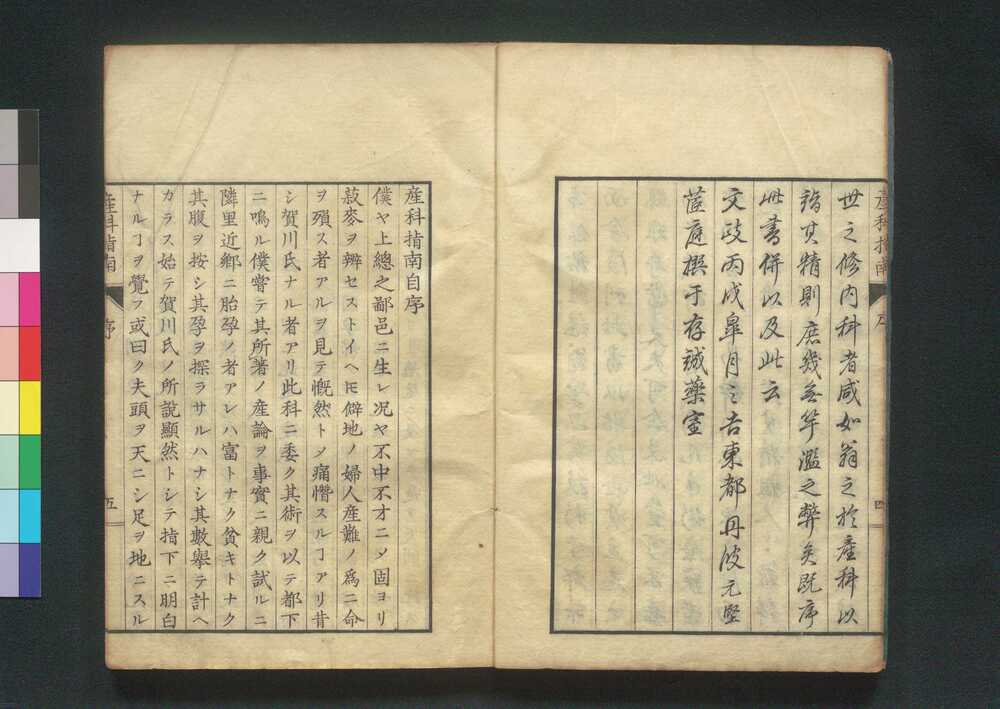 世之修内科者咸如翁之於産科以
詣其精則庶幾無竽濫之弊矣既序
此書併以及此云
文政丙戌皐月之吉東都丹波元堅
茝庭撰于存誠藥室
産科指南 序 四
産科指南自序
僕ヤ上總之鄙邑ニ生レ况ヤ不中不才ニメ固ヨリ
菽麥ヲ辨セストイヘ𪜈僻地ノ婦人産難ノ爲ニ命
ヲ殞ス者アルヲ見テ慨然トメ痛懵スルヿアリ昔
シ賀川氏ナル者アリ此科ニ委ク其術ヲ以テ都下
ニ鳴ル僕嘗テ其所著ノ産論ヲ事實ニ親ク試ルニ
隣里近郷ニ胎孕ノ者アレハ富トナク貧キトナク
其腹ヲ按シ其孕ヲ探ラサルハナシ其數擧テ計ヘ
カラス始テ賀川氏ノ所説顯然トシテ指下ニ明白
ナルヿヲ覺フ或曰ク夫頭ヲ天ニシ足ヲ地ニスル
産科指南 序 五